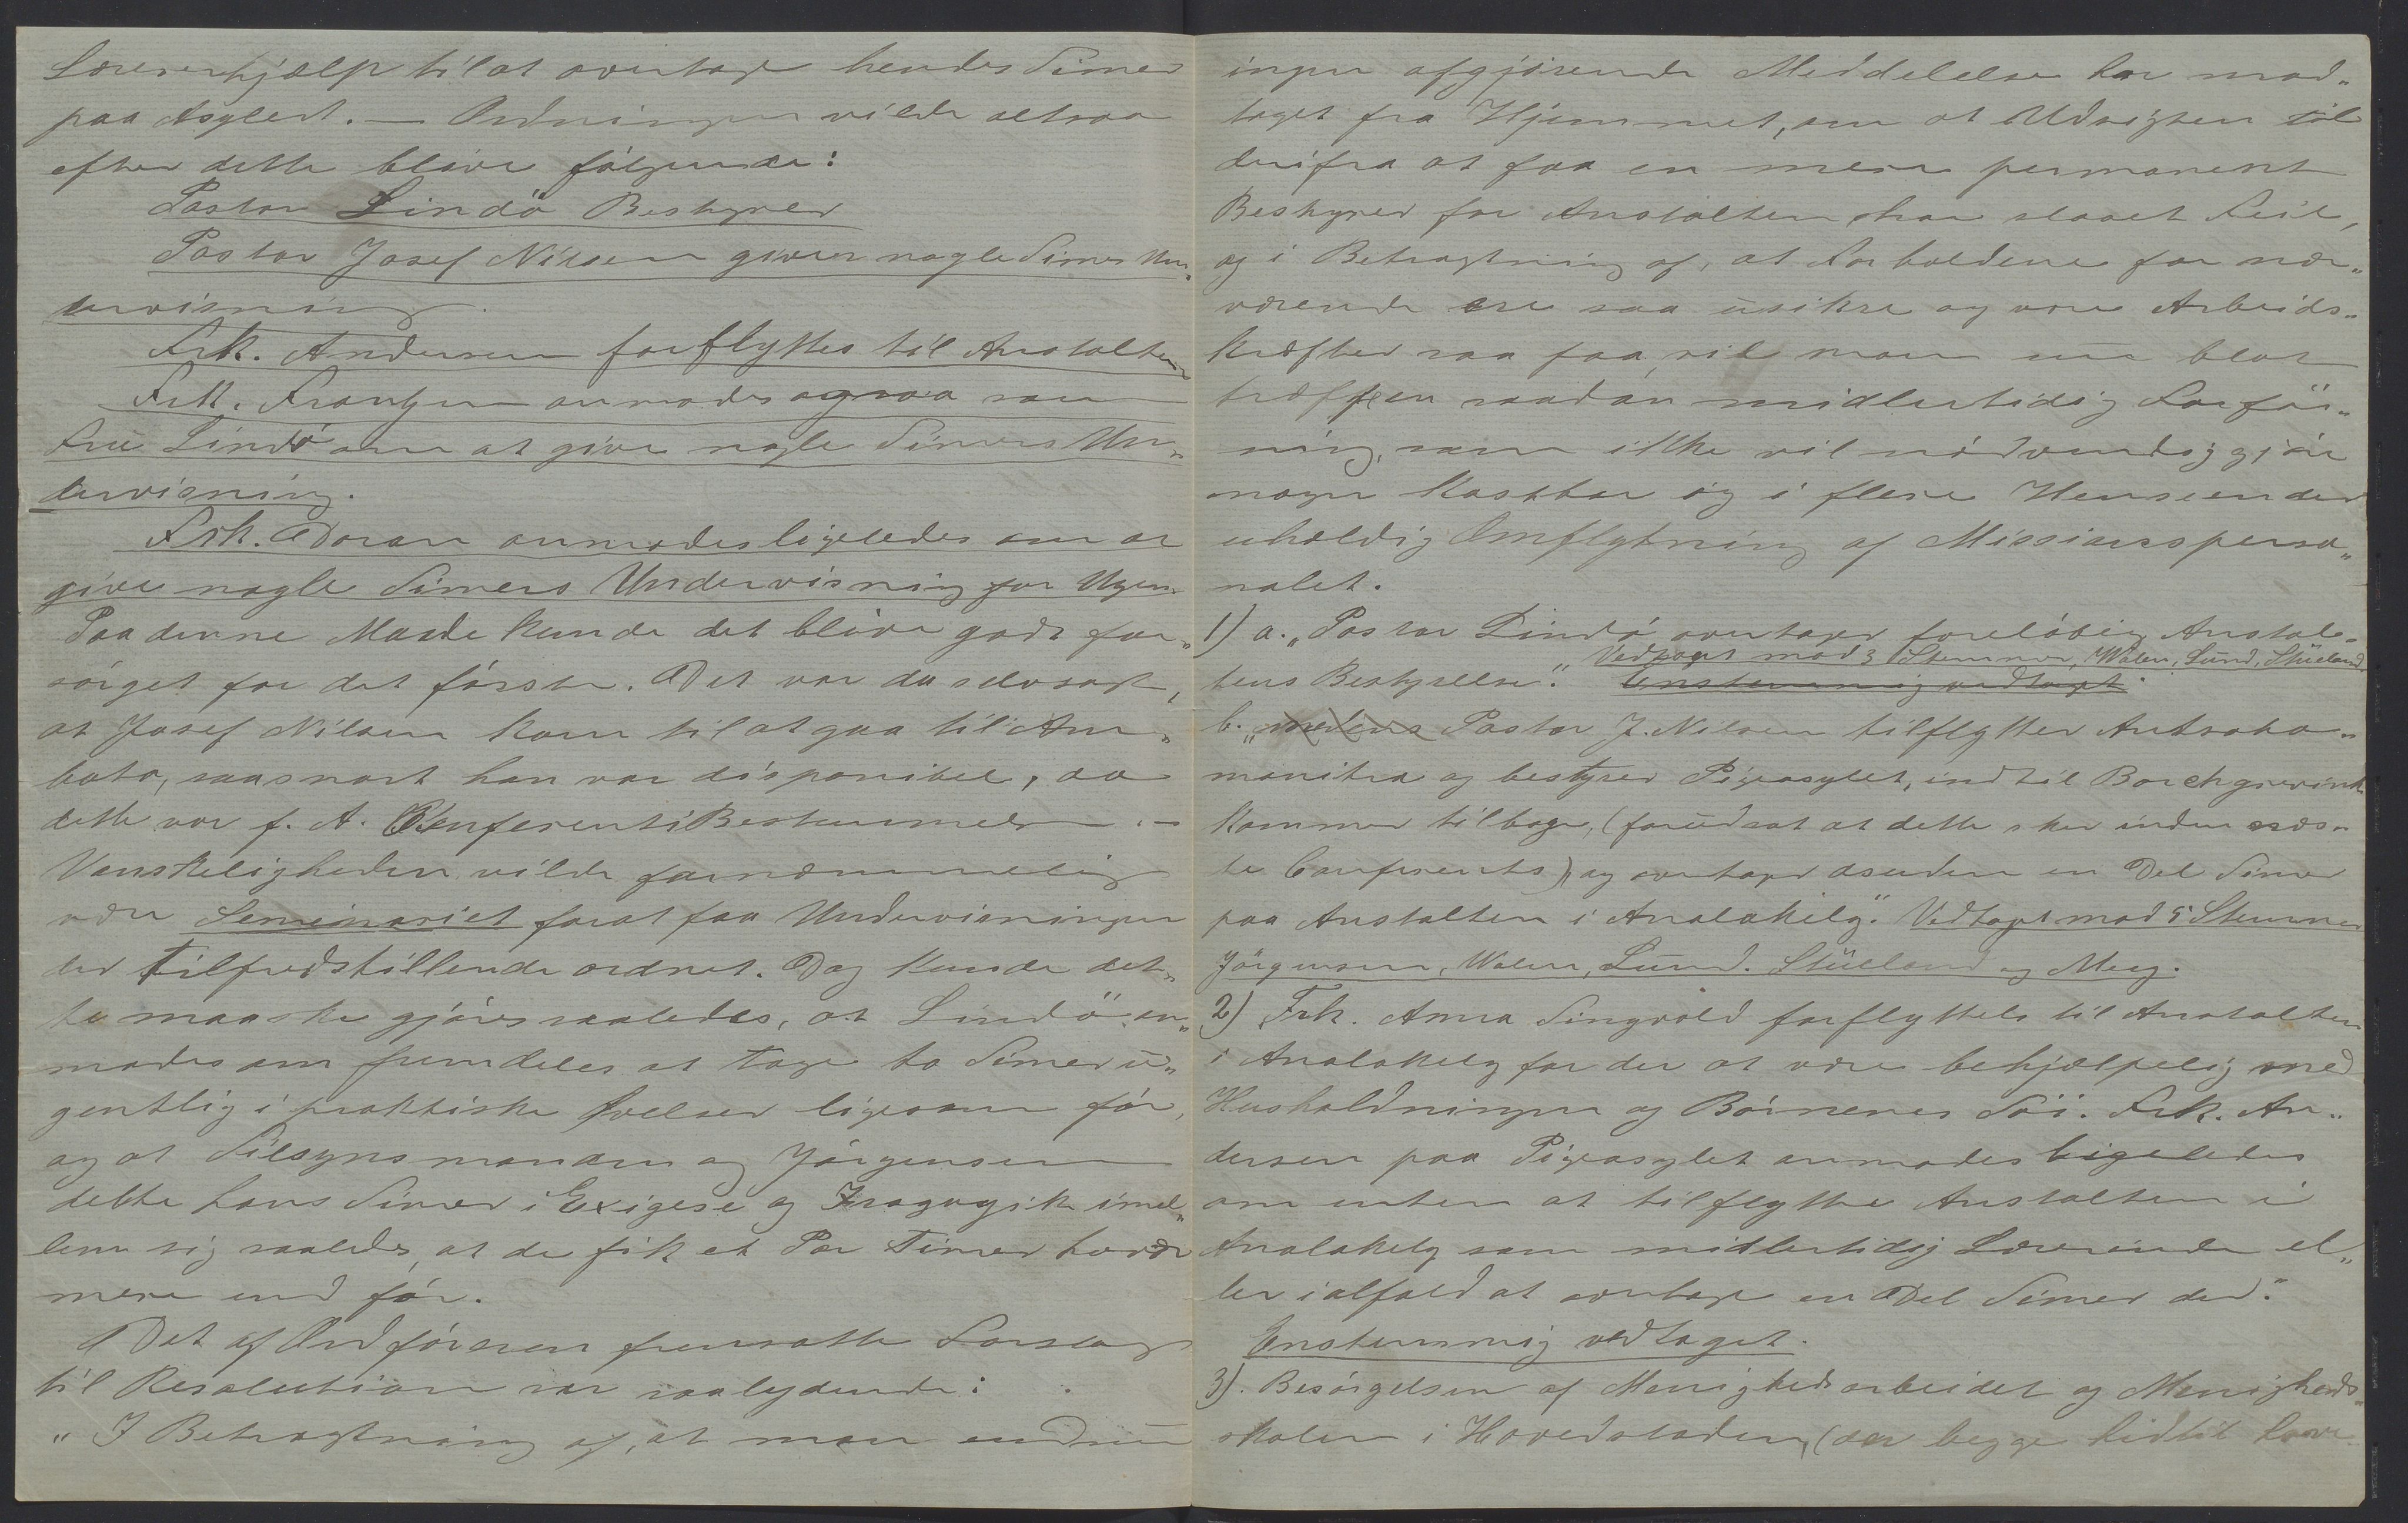 Lærerhjælp til at overtage hendes Timer
paa Asylet. — Ordningen vilde altsaa
efter dette blive følgende:
Pastor Lindö Bestyrer
Pastor Josef Nilsen giver nogle Timers Un„
dervisning.
Frk. Andersen forflyttes til Anstalten
Frk. Frantzen anmodes ogsaa som
Fru Lindö om at give nogle Timers Un„
dervisning.
Frk. Doran anmodes ligeledes om at
give nogle Timers Undervisning for Ugen.
Paa denne Maade kunde det blive godt for„
sörget for det förste. Det var da selvsagt,
at Josef Nilsen kom til at gaa til Am„
bato, saasnart han var disponibel, da
dette var f. A. Conferents Bestemmelse. —
Vanskeligheden vilde fornemmelig
være Seminariet forat faa Undervisningen
der tilfredstillende ordnet. Dog kunde det„
te maaske gjöres saaledes, at Lindö an„
modes om fremdeles at tage to Timer u„
gentlig i praktiske Övelser ligesom för,
og at Tilsynsmanden og Jörgensen
delte hans Timer i Exigese og Isagogik imel„
lem sig saaledes, at de fik et Par Timer hver
mere end för.
Det af Ordföreren fremsatte Forslag
til Resolution var saalydende:
„I Betragtning af, at man endnu
ingen afgjörende Meddelelse har mod„
taget fra Hjemmet, om at Udsigten til
derifra at faa en mere permanent
Bestyrer for Anstalten har slaaet Feil,
og i Betragtning af, at Forholdene for nær„
værende ere saa usikre og vore Arbeids„
kræfter saa faa, vil man nu blot
træffe en saadan midlertidig Forföi„
ning, som ikke vil nödvendiggjöre
nogen kostbar og i flere Henseender
uheldig Omflytning af Missionsperso„
nalet.
1) a. „Pastor Lindö overtager forelöbig Anstal„
Vedtaget mod 3 Stemmer, Walen, Lund, Stüeland
tens Bestyrelse." Enstemmig vedtaget.
b. „medens Pastor J. Nilsen tilflytter Antsaha„
manitra og bestyrer Pigeasylet, indtil Borchgrevink
kommer tilbage, (forudsat at dette sker inden næs„
te Conferents) og overtager desuden en Del Timer
paa Anstalten i Analakely". Vedtaget mod 5 Stemmer
Jörgensen, Walen, Lund, Stüeland og Meeg.
2) Frk. Anna Tingvold forflyttes til Anstalten
i Analakely for der at være behjælpelig med
Husholdningen og Börnenes Töi. Frk. An„
dersen paa Pigeasylet anmodes ligeledes
om enten at tilflytte Anstalten i
Analakely som midlertidig Lærerinde el„
ler ialfald at overtage en Del Timer der."
Enstemmig vedtaget.
3). Besörgelsen af Menighedsarbeidet og Menigheds„
skolen i Hovedstaden, (der begge hidtil have